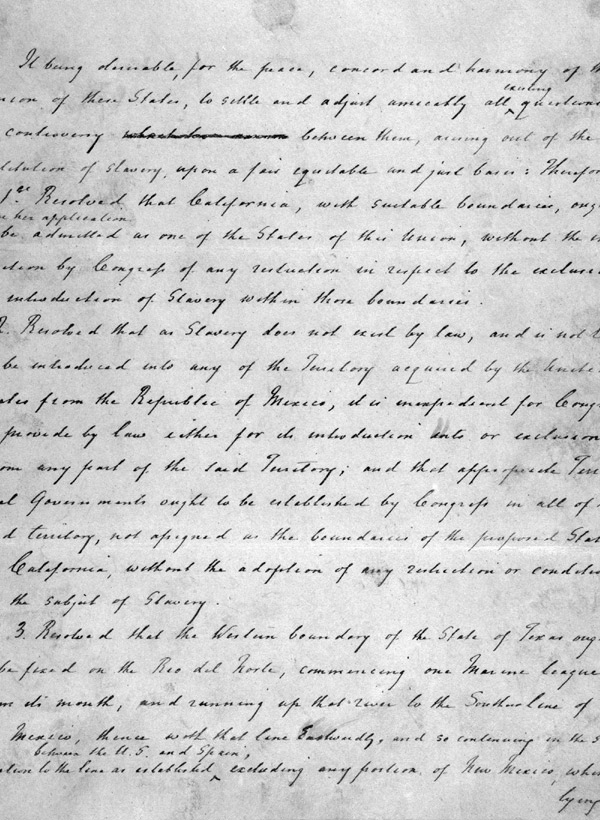 It being desirable, for the peace, concord and harmony of th
existing
nion of these States, to settle and adjust amicably all questions
controversy between them, arising out of the
stitution of slavery, upon a fair equitable and just basis: Therefor
1st Resolved that California, with suitable boundaries, oug
n her application
be admitted as one of the States of this Union, without the i
ction by Congress of any restriction in respect to the exclusi
introduction of Slavery within those boundaries.
2. Resolved that as Slavery does not exist by law, and is not l
be introduced into any of the Territory acquired by the Unite
ates from the Republic of Mexico, it is inexpedient for Congr
provide by law either for its introduction into or exclusion
om any part of the said Territory; and that appropriate Terr
al Governments ought to be established by Congress in all of
d territory, not assigned as the boundaries of the proposed Stat
California, without the adoption of any restriction or conditio
the subject of Slavery.
3. Resolved that the Western boundary of the State of Texas oug
be fixed on the Rio del Norte, commencing one Marine league
om its mouth, and running up that river to the Southern line of
Mexico, thence with that line Eastwardly, and so continuing in the s
between the U.S. and Spain,
ction to the line as established excluding any portion of New Mexico, whe
lying